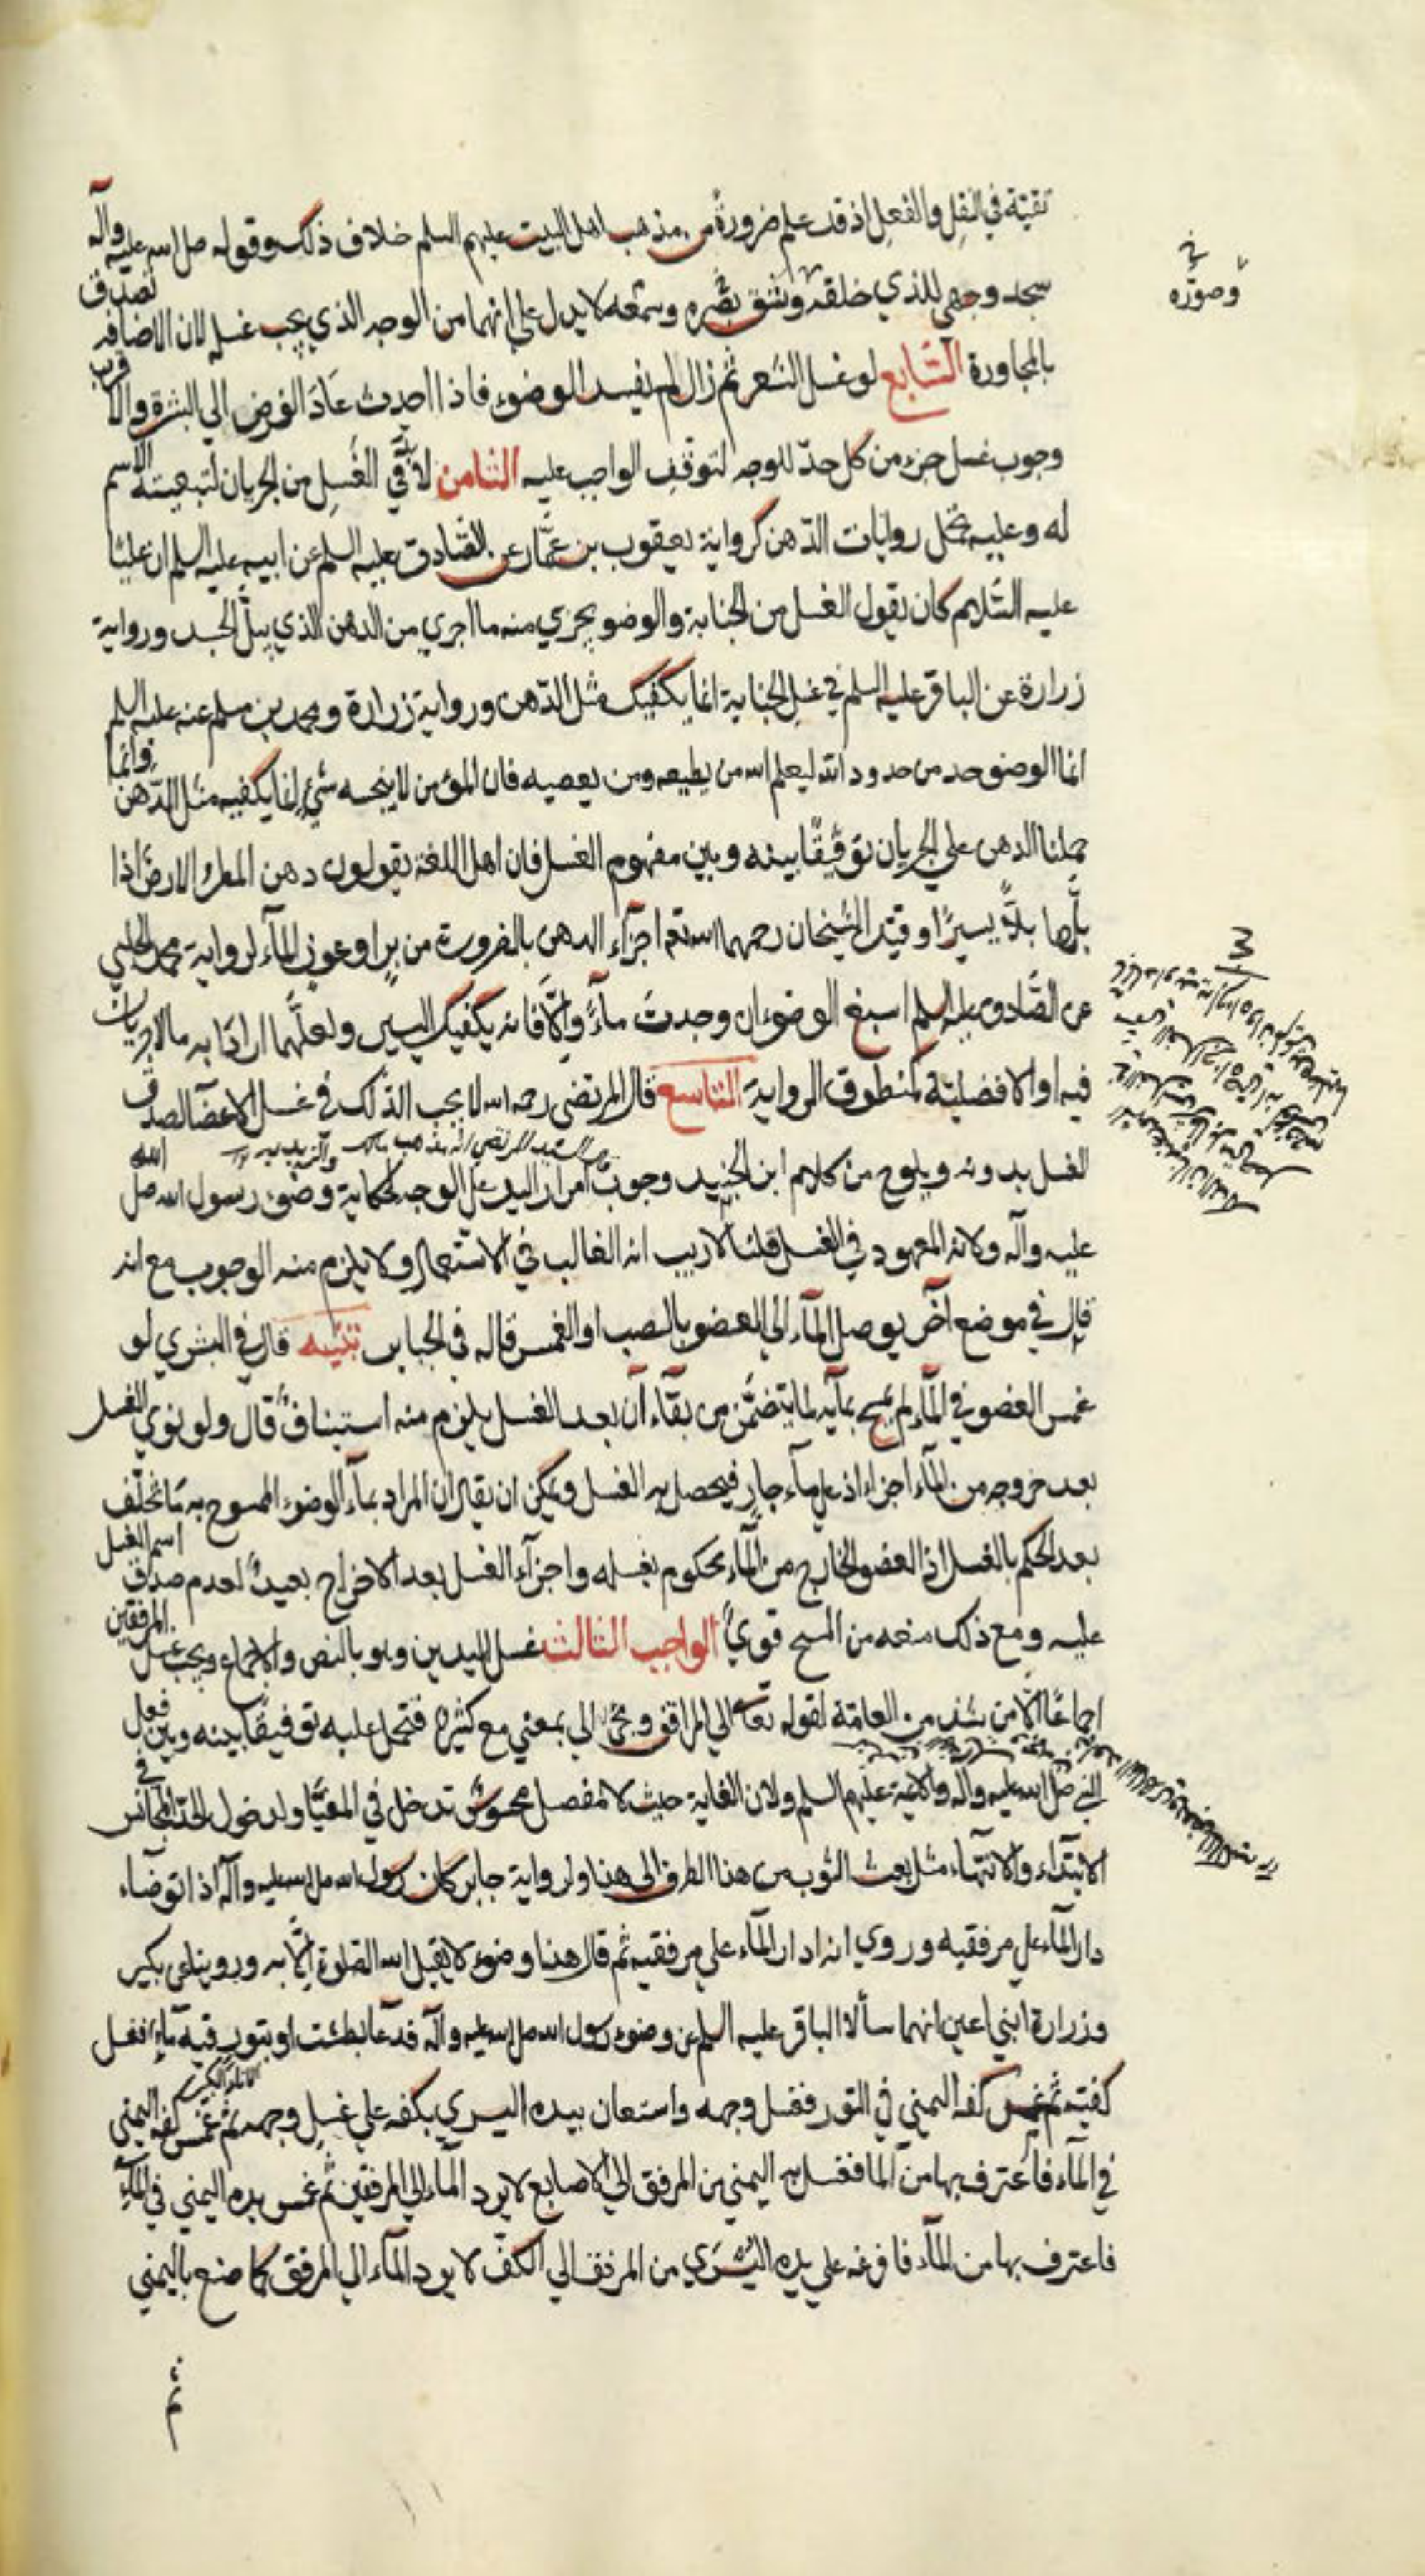 تقيّة في النقل والفعل اذ قد علم ضرورة من مذهب اهل البيت عليهم السلم خلاف ذلك وقوله صل اسه عليه وآله
سجد وجهي للذي خلقه وشق بصره وسمعه لا يدل على انهما من الوجه الذي يجب غسله لان الاضافه تصدق
بالمجاورة السّابع لو غسل الشعر ثم زال لم يفسد الوضوء فاذا احدث عاد الفرض الي البشرة والاقرب
وجوب غسل جزء من كل حدّ للوجه لتوقف الواجب عليه الثامن لا بدّ في الغسل من الجريان لتبعيته الاسم
له وعليه تحمل روايات الدّهن كرواية يعقوب بن عمّار عن الصّادق عليه السلم عن ابيه عليه السلم ان عليّا
عليه السّلام كان يقول الغسل من الجنابة والوضو يجزي منه ما اجري من الدهن الذي يبلّ الجسد ورواية
زرارة عن الباقر عليه السلم في غسل الجنابة انما يكفيك مثل الدّهن ورواية زرارة ومحمد بن مسلم عنه عليه السلم
انما الوضو حد من حدود الله ليعلم اسه من يطيعه ومن يعصيه فان المؤمن لا ينجسه شيء انما يكفيه مثل الدّهن وانما
حملنا الدهن علي الجريان توفيقًا بينه وبين مفهوم الغسل فان اهل اللغة يقولون دهن المطر الارض اذا
بلّها بلاًّ يسيرًا وقيّد الشيخان رحمهما اسه تعم اجزآء الدهن بالضرورة من برد او عوز المآء لرواية محمد الحلبي
عن الصّادق عليه السلم اسبغ الوضوء ان وجدت مآءً والّا فانه يكفيك اليسير ولعلّهما ارادا به ما لا جريان
فيه او الافضليّة كمنطوق الرواية التاسع قال المرتضى رحمه اسه لا يجب الدّلك في غسل الاعضآ لصدق
الغسل بدونه ويلوح من كلام ابن الجنيد وجوب امرار اليد علي الوجه لحكاية وضوء رسول الله صل الله
عليه وآله ولانه المعهود في الغسل قلنا لا ريب انه الغالب في الاستعمال ولا يلزم منه الوجوب مع انه
قال في موضع آخر يوصل المآء الي العضو بالصب او الغمس قاله في الجباير تنبيه قال في البشري لو
غمس العضو في المآء لم يمسح بمآيه لما يتضمّن من بقآء آن بعد الغسل يلزم منه استيناف قال ولو نوي الغسل
بعد خروجه من المآء اجزاء اذ علي مآء جار فيحصل به الغسل ويمكن ان يقال ان المراد بمآء الوضوء الممسوح به ما تخلّف
بعد الحكم بالغسل اذ العضو الخارج من المآء محكوم بغسله واجزآء الغسل بعد الاخراج بعيد لعدم صدق اسم الغسل
عليه ومع ذلك منعه من المسح قوي الواجب الثالث غسل اليدين وهو بالنص والاجماع ويجب غسل المرفقين
اجماعًا الّا من شذ من العامّة لقوله تعا الي المرافق ومجئ الي بمعني مع كثيرة فتحمل عليه توفيقًا بينه وبين فعل
النبي صل اسه عليه وآله والائمة عليهم السلم ولان الغاية حيث لا مفصل محسوس تدخل في المغيّا ولدخول الحد المجانس في
الابتداء والانتهاء مثل بعت الثوب من هذا الطرف الى هذا ولرواية جابر كان رسول اسه صل اسه عليه وآله اذا توضّاء
دار المآء علي مرفقيه وروي انه ادار المآء علي مرفقيه ثم قال هذا وضوء لا يقبل اسه الصلوة الّا به وروينا عن بكير
وزرارة ابني اعين انهما سألا الباقر عليه السلم عن وضوء رسول اسه صل اسه عليه وآله فدعا بطشت او بتور فيه مآء فغسل
كفيه ثم غمس كفه اليمني في التور فغسل وجهه واستعان بيده اليسري بكفه علي غسل وجهه ثم غمس كفه اليمني
في المآء فاغترف بها من المآ فغسل يده اليمني من المرفق الي الاصابع لا يرد المآء الي المرفقين ثم غمس يده اليمني في المآء
فاغترف بها من المآء فافرغه علي يده اليسري من المرفق الي الكفّ لا يرد المآء الي المرفق كما صنع باليمني
ثم
وصوّره
خ